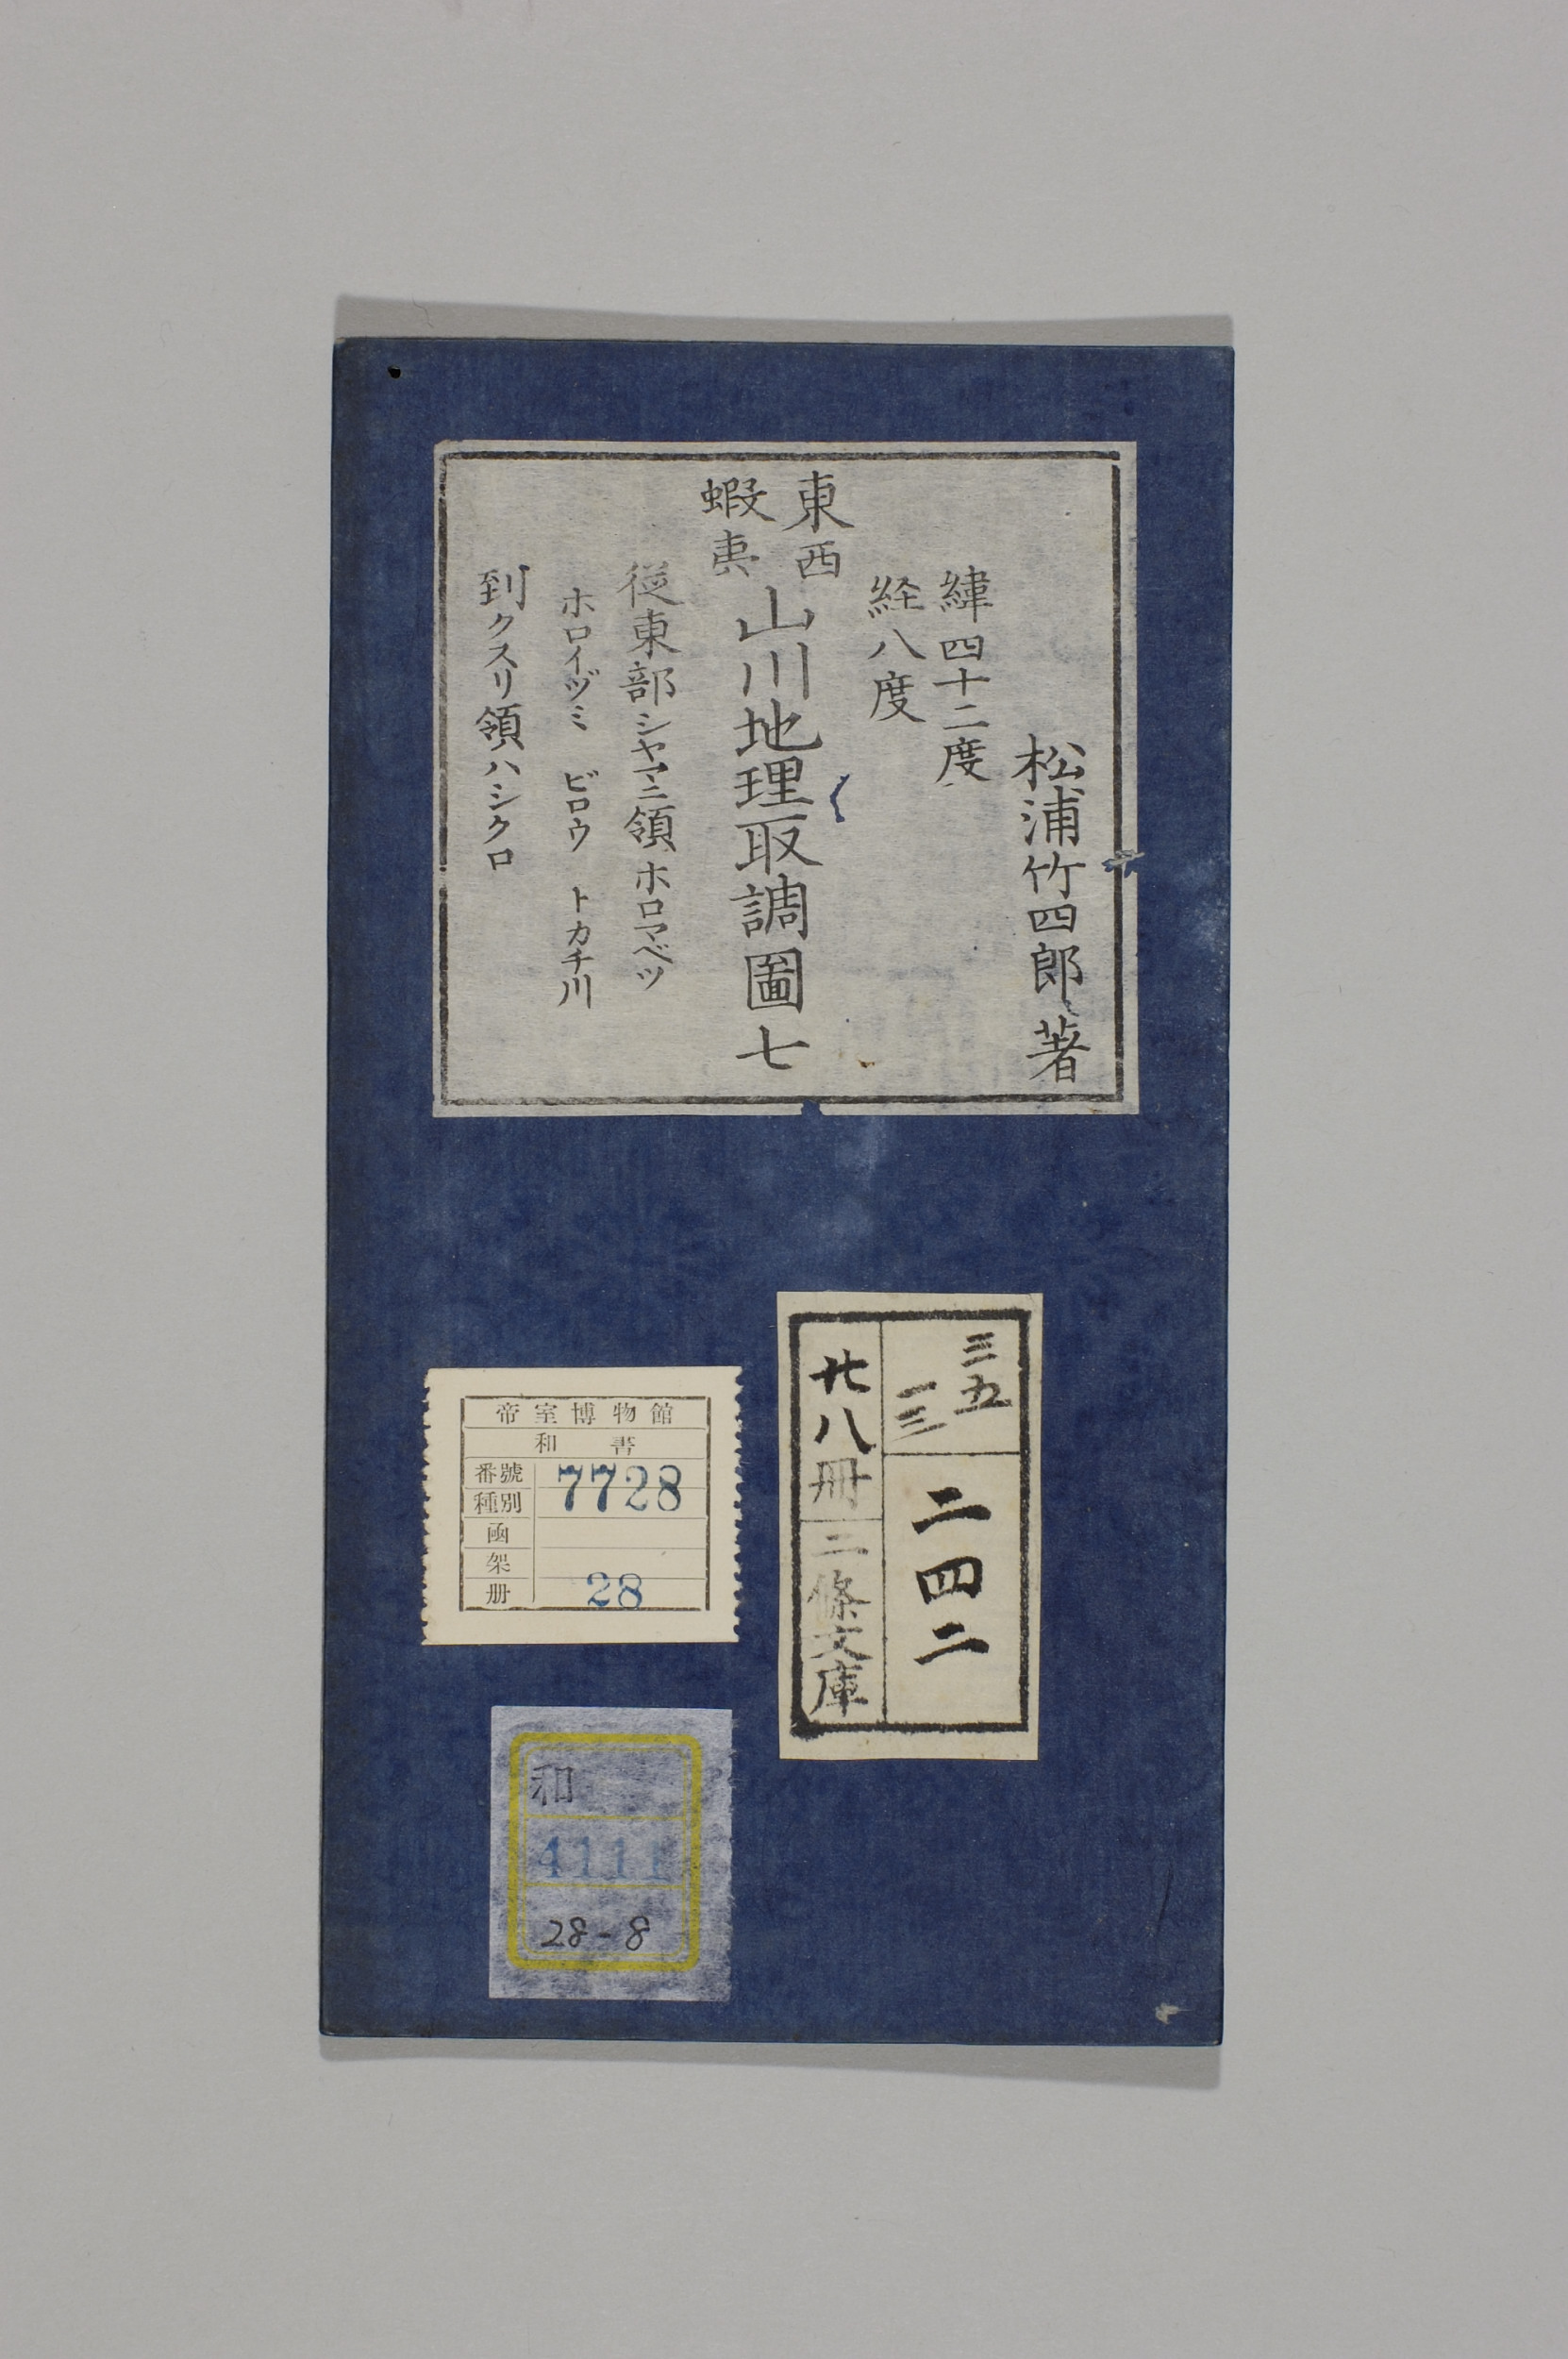 松浦竹四郎著
緯四十二度
経八度
東西
蝦夷
山川地理取調圖 七
従東部シヤマニ領ホロマベツ
ホロイヅミ ビロウ トカチ川
到クスリ領ハシクロ
三五
一三
二四二
廿八冊
二條文庫
帝室博物館
和書
番號 7728
種別
函
架
册 28
和
4111
28-8